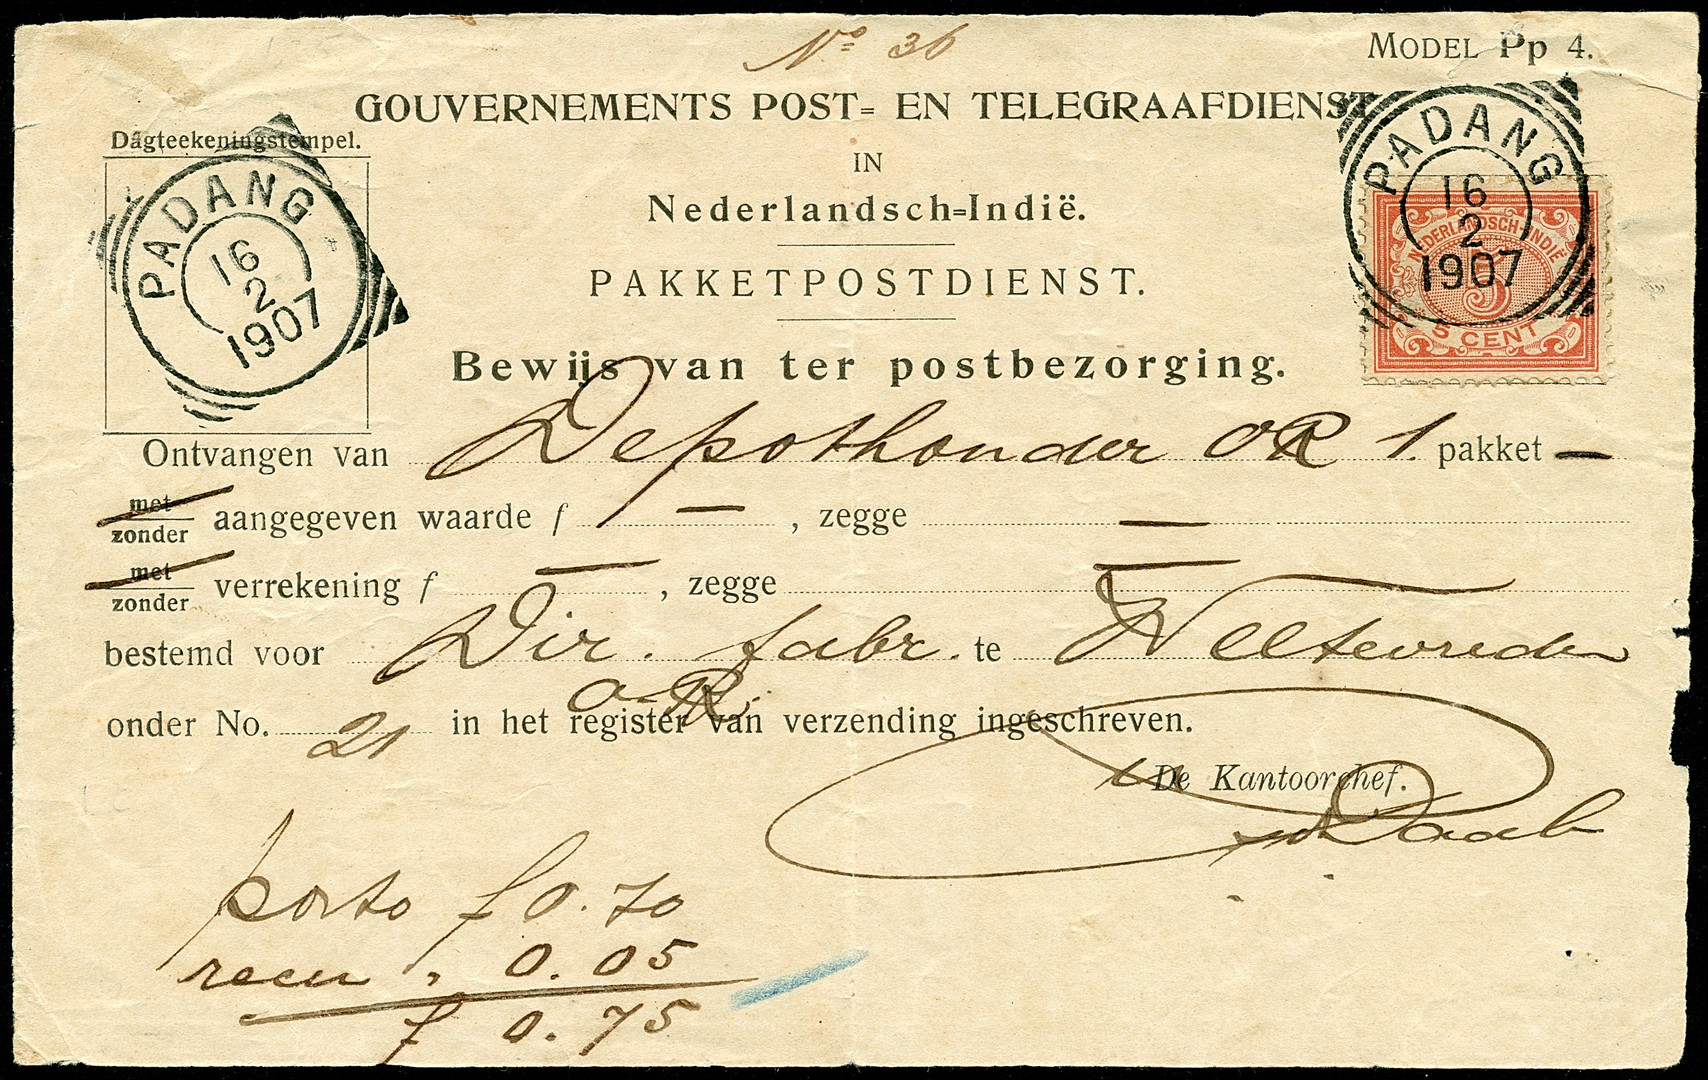 Nº 36
MODEL Pp 4.
GOUVERNEMENTS POST= EN TELEGRAAFDIENST
IN
Nederlandsch=Indië.
PAKKETPOSTDIENST.
Bewijs van ter postbezorging.
Dagteekeningstempel.
PADANG
16
2
1907
PADANG
16
2
1907
NEDERLANDSCH-INDIË
5
5 CENT
Ontvangen van Depothouder OR 1. pakket —
met
zonder aangegeven waarde f — , zegge —
met
zonder verrekening f — , zegge —
bestemd voor Dir. fabr. te Weltevreden
O. R.
onder No. 21 in het register van verzending ingeschreven.
De Kantoorchef.
porto f 0.70
recu " 0.05
f 0.75